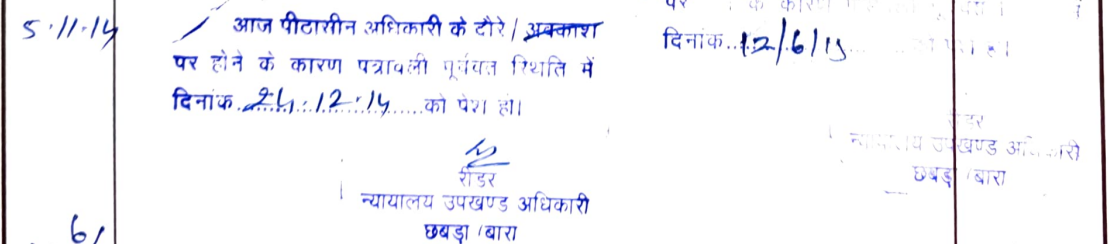 5.11.14
आज पीठासीन अधिकारी के दौरे / अवकाश
पर होने के कारण पत्रावली पूर्ववत स्थिति में
दिनांक 24.12.14 को पेश हो।
रीडर
न्यायालय उपखण्ड अधिकारी
छबड़ा / बारा
6/
पर के कारण
दिनांक 12/6/15
रीडर
न्यायालय उपखण्ड अधिकारी
छबड़ा / बारा